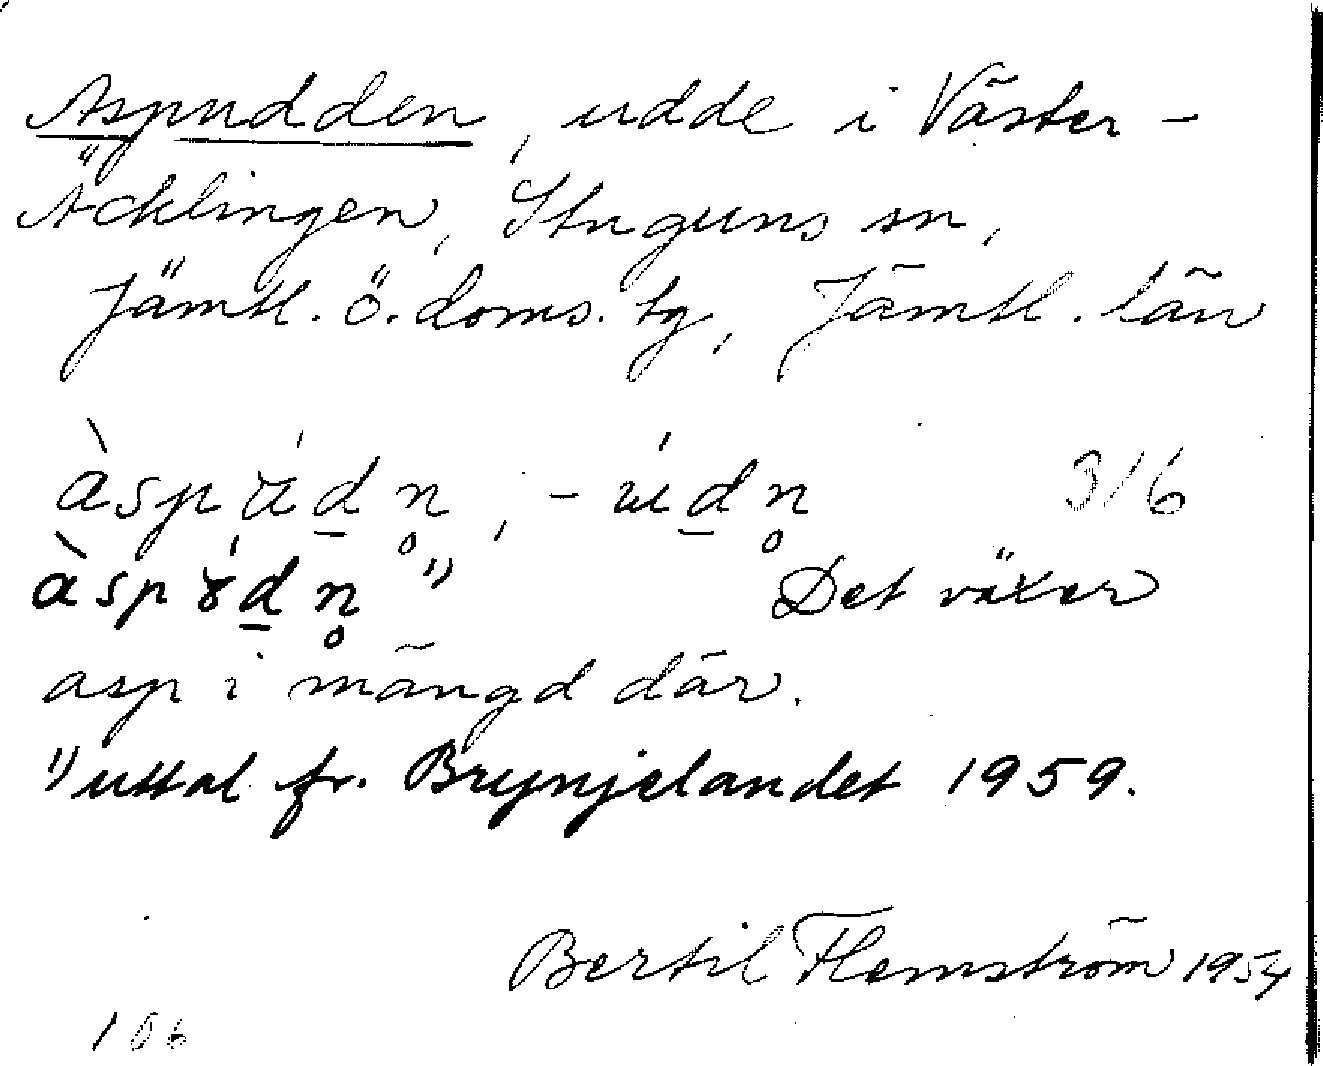 Aspudden, udde i Väster-
Äcklingen, Stuguns sn,
Jämtl. ö. doms. tg, Jämtl. län
àspúd̲n̥, -úd̲n̥ 316
àspɤ́d̲n̥ ¹⁾ Det växer
asp i mängd där.
¹⁾ uttal fr. Brynjelandet 1959.
Bertil Flemström 1954
106